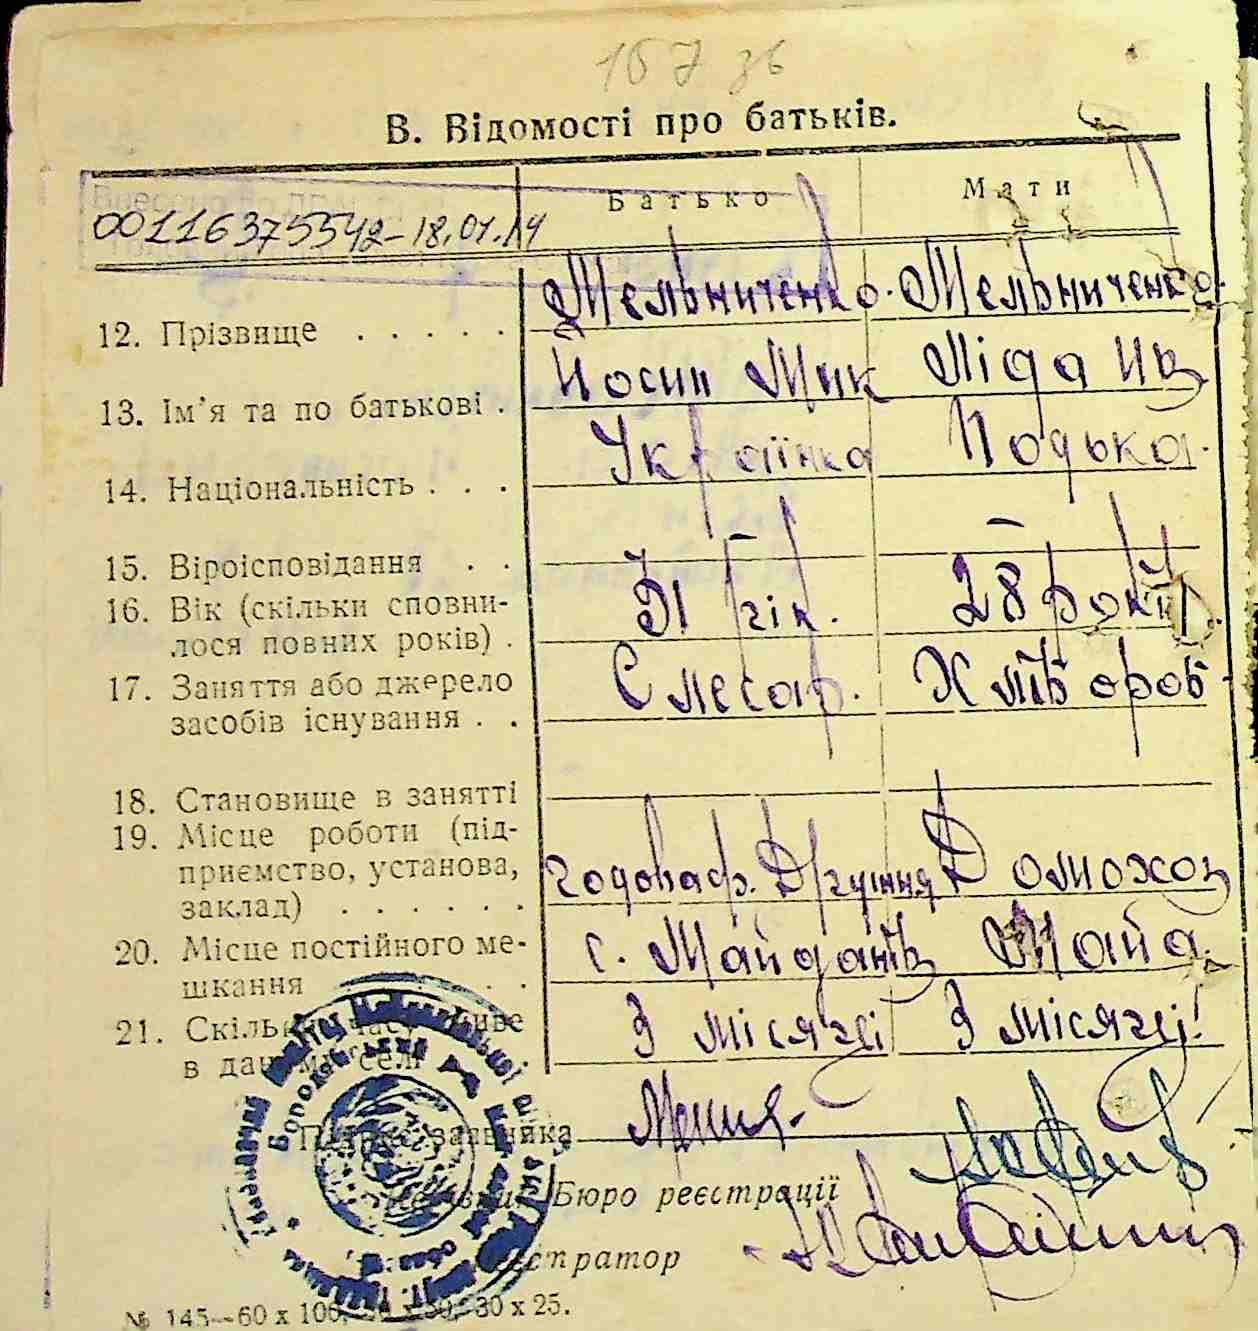 167 зв
В. Відомості про батьків.
Батько Мати
00116375542-18.01.14
12. Прізвище . . . . . Мельниченко. Мельниченко.
13. Ім'я та по батькові . Йосип Мик Ліда Ив
14. Національність . . . Українка Полька.
15. Віроісповідання . . – –
16. Вік (скільки сповни-
лося повних років) . 31 рік. 28 років
17. Заняття або джерело
засобів існування . . Слесар. Хлібороб
18. Становище в занятті
19. Місце роботи (під-
приємство, установа,
заклад) . . . . . . Домохоз
20. Місце постійного ме-
шкання . . . с. Майданів Майда.
21. Скільки часу живе
в даному селі 3 місяці 3 місяці!
Підпис заявника
Бюро реєстрації
Реєстратор
№ 145—60 х 100, 30 х 25.